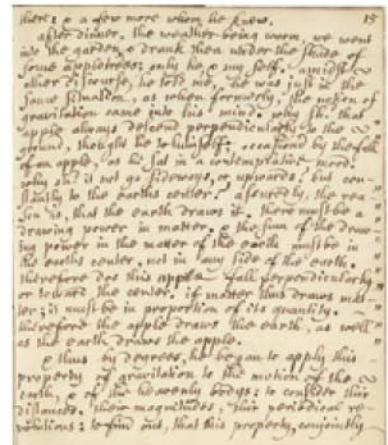 there: & a few more whom he knew. 15
after dinner, the weather being warm, we went
into the garden, & drank thea under the shade of
some appletrees; only he, & my self. amidst
other discourse, he told me, he was just in the
same situation, as when formerly, the notion of
gravitation came into his mind. why sh.d that
apple always descend perpendicularly to the
ground, thought he to himself; occasion'd by the fall
of an apple, as he sat in a contemplative mood.
why sh.d it not go sideways, or upwards? but con-
stantly to the earths center? assuredly, the rea-
son is, that the earth draws it. there must be a
drawing power in matter. & the sum of the draw-
ing power in the matter of the earth must be in
the earths center, not in any side of the earth.
therefore dos this apple fall perpendicularly
or toward the center. if matter thus draws mat-
ter; it must be in proportion of its quantity.
therefore the apple draws the earth, as well
as the earth draws the apple.
& thus by degrees, he began to apply this
property of gravitation to the motion of the
earth, & of the heavenly bodys: to consider their
distances, their magnitudes, their periodical re-
volutions: to find out, that this property, conjointly